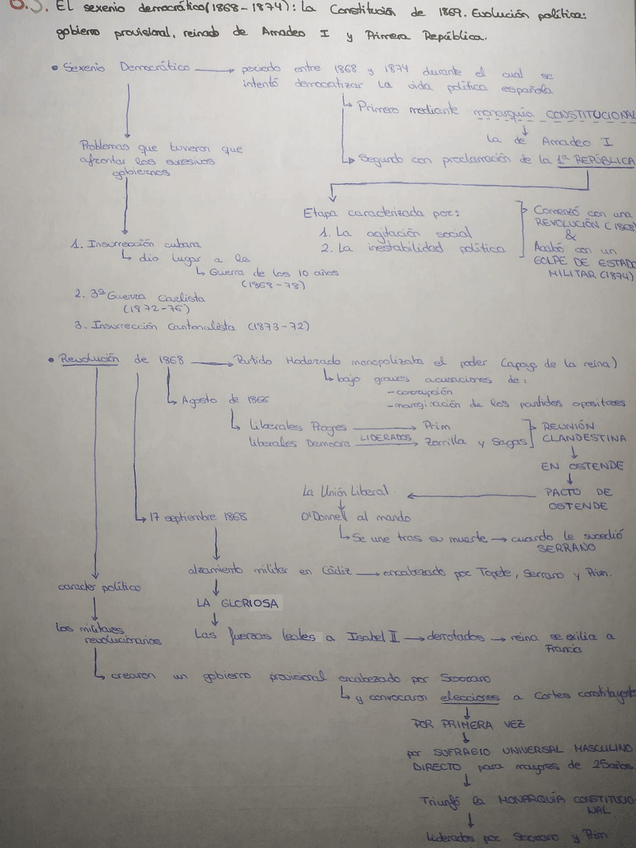 6.3. El sexenio democrático (1868-1874): La Constitución de 1869. Evolución política:
gobierno provisional, reinado de Amadeo I y Primera República.
• Sexenio Democrático → periodo entre 1868 y 1874 durante el cual se
intentó democratizar la vida política española
↳ Primero mediante monarquía CONSTITUCIONAL
↓
La de Amadeo I
↳ Segundo con proclamación de la 1ª REPÚBLICA
Problemas que tuvieron que
afrontar los sucesivos
gobiernos
Etapa caracterizada por:
1. La agitación social
2. La inestabilidad política
Comenzó con una
REVOLUCIÓN (1868)
&
Acabó con un
GOLPE DE ESTADO
MILITAR (1874)
1. Insurrección cubana
↳ dio lugar a la
↳ Guerra de los 10 años
(1868-78)
2. 3ª Guerra Carlista
(1872-76)
3. Insurrección Cantonalista (1873-72)
• Revolución de 1868 → Partido Moderado monopolizaba el poder (apoyo de la reina)
↳ bajo graves acusaciones de:
- corrupción
- marginación de los partidos opositores
↳ Agosto de 1866
↳ Liberales Progres → Prim
Liberales Democra LIDERADOS → Zorrilla y Sagas
REUNIÓN
CLANDESTINA
↓
EN OSTENDE
↓
PACTO DE
OSTENDE
La Unión Liberal ←
↓
O'Donnell al mando
↳ Se une tras su muerte → cuando le sucedió
SERRANO
↳ 17 septiembre 1868
↓
alzamiento militar en Cádiz → encabezado por Topete, Serrano y Prim.
↓
LA GLORIOSA
↓
Las fuerzas leales a Isabel II → derrotadas → reina se exilia a
Francia
carácter político
↓
los militares
revolucionarios
↳ crearon un gobierno provisional encabezado por Serrano
↳ y convocaron elecciones a Cortes constituyent
↓
POR PRIMERA VEZ
↓
por SUFRAGIO UNIVERSAL MASCULINO
DIRECTO para mayores de 25 años
↓
Triunfó la MONARQUÍA CONSTITUCIO
NAL
↓
Liderados por Serrano y Prim